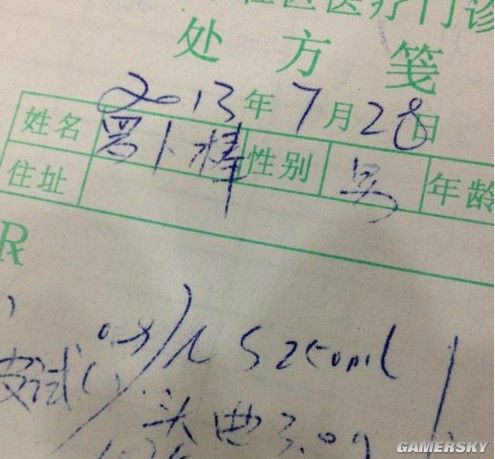 社区医疗门诊
处方笺
2013年7月28日
姓名 罗卜棒 性别 男 年龄
住址
R
皮试() 0.9/NS 250ml
头曲3.0g
GAMERSKY